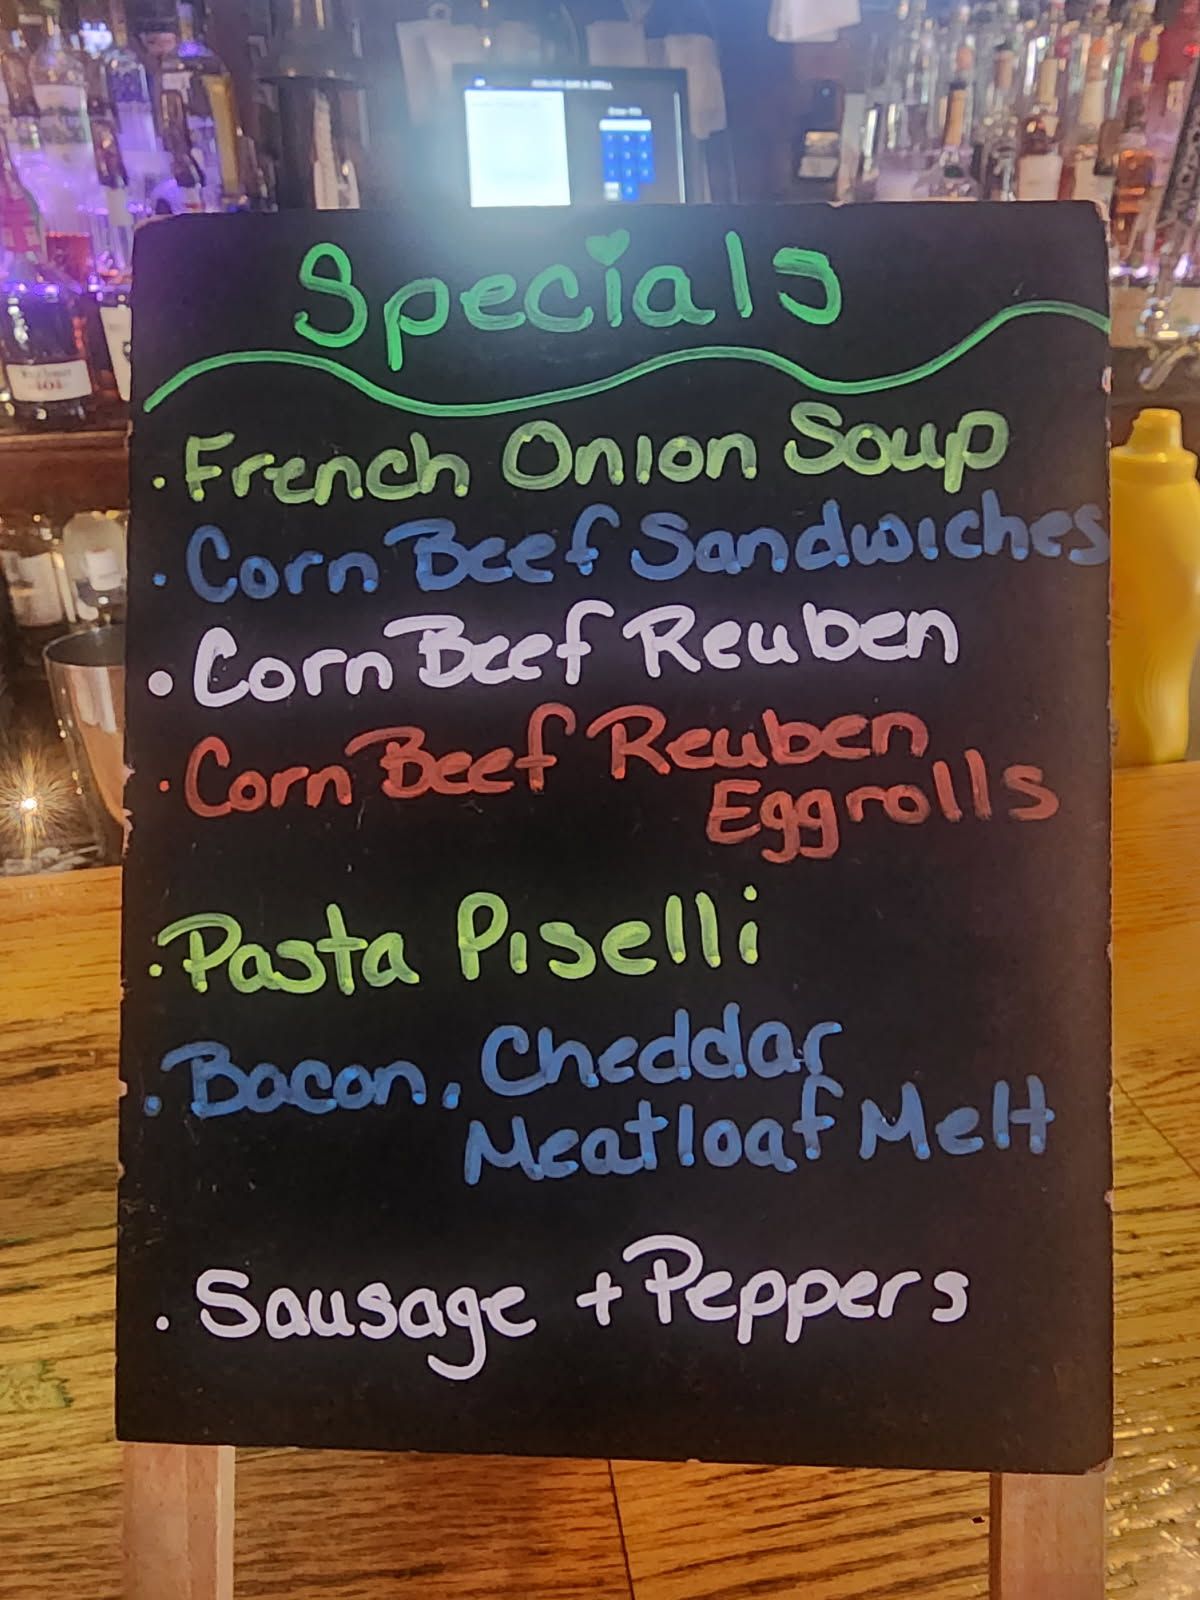 Specials
· French Onion Soup
· Corn Beef Sandwiches
· Corn Beef Reuben
· Corn Beef Reuben
Eggrolls
· Pasta Piselli
· Bacon, Cheddar
Meatloaf Melt
· Sausage + Peppers
101